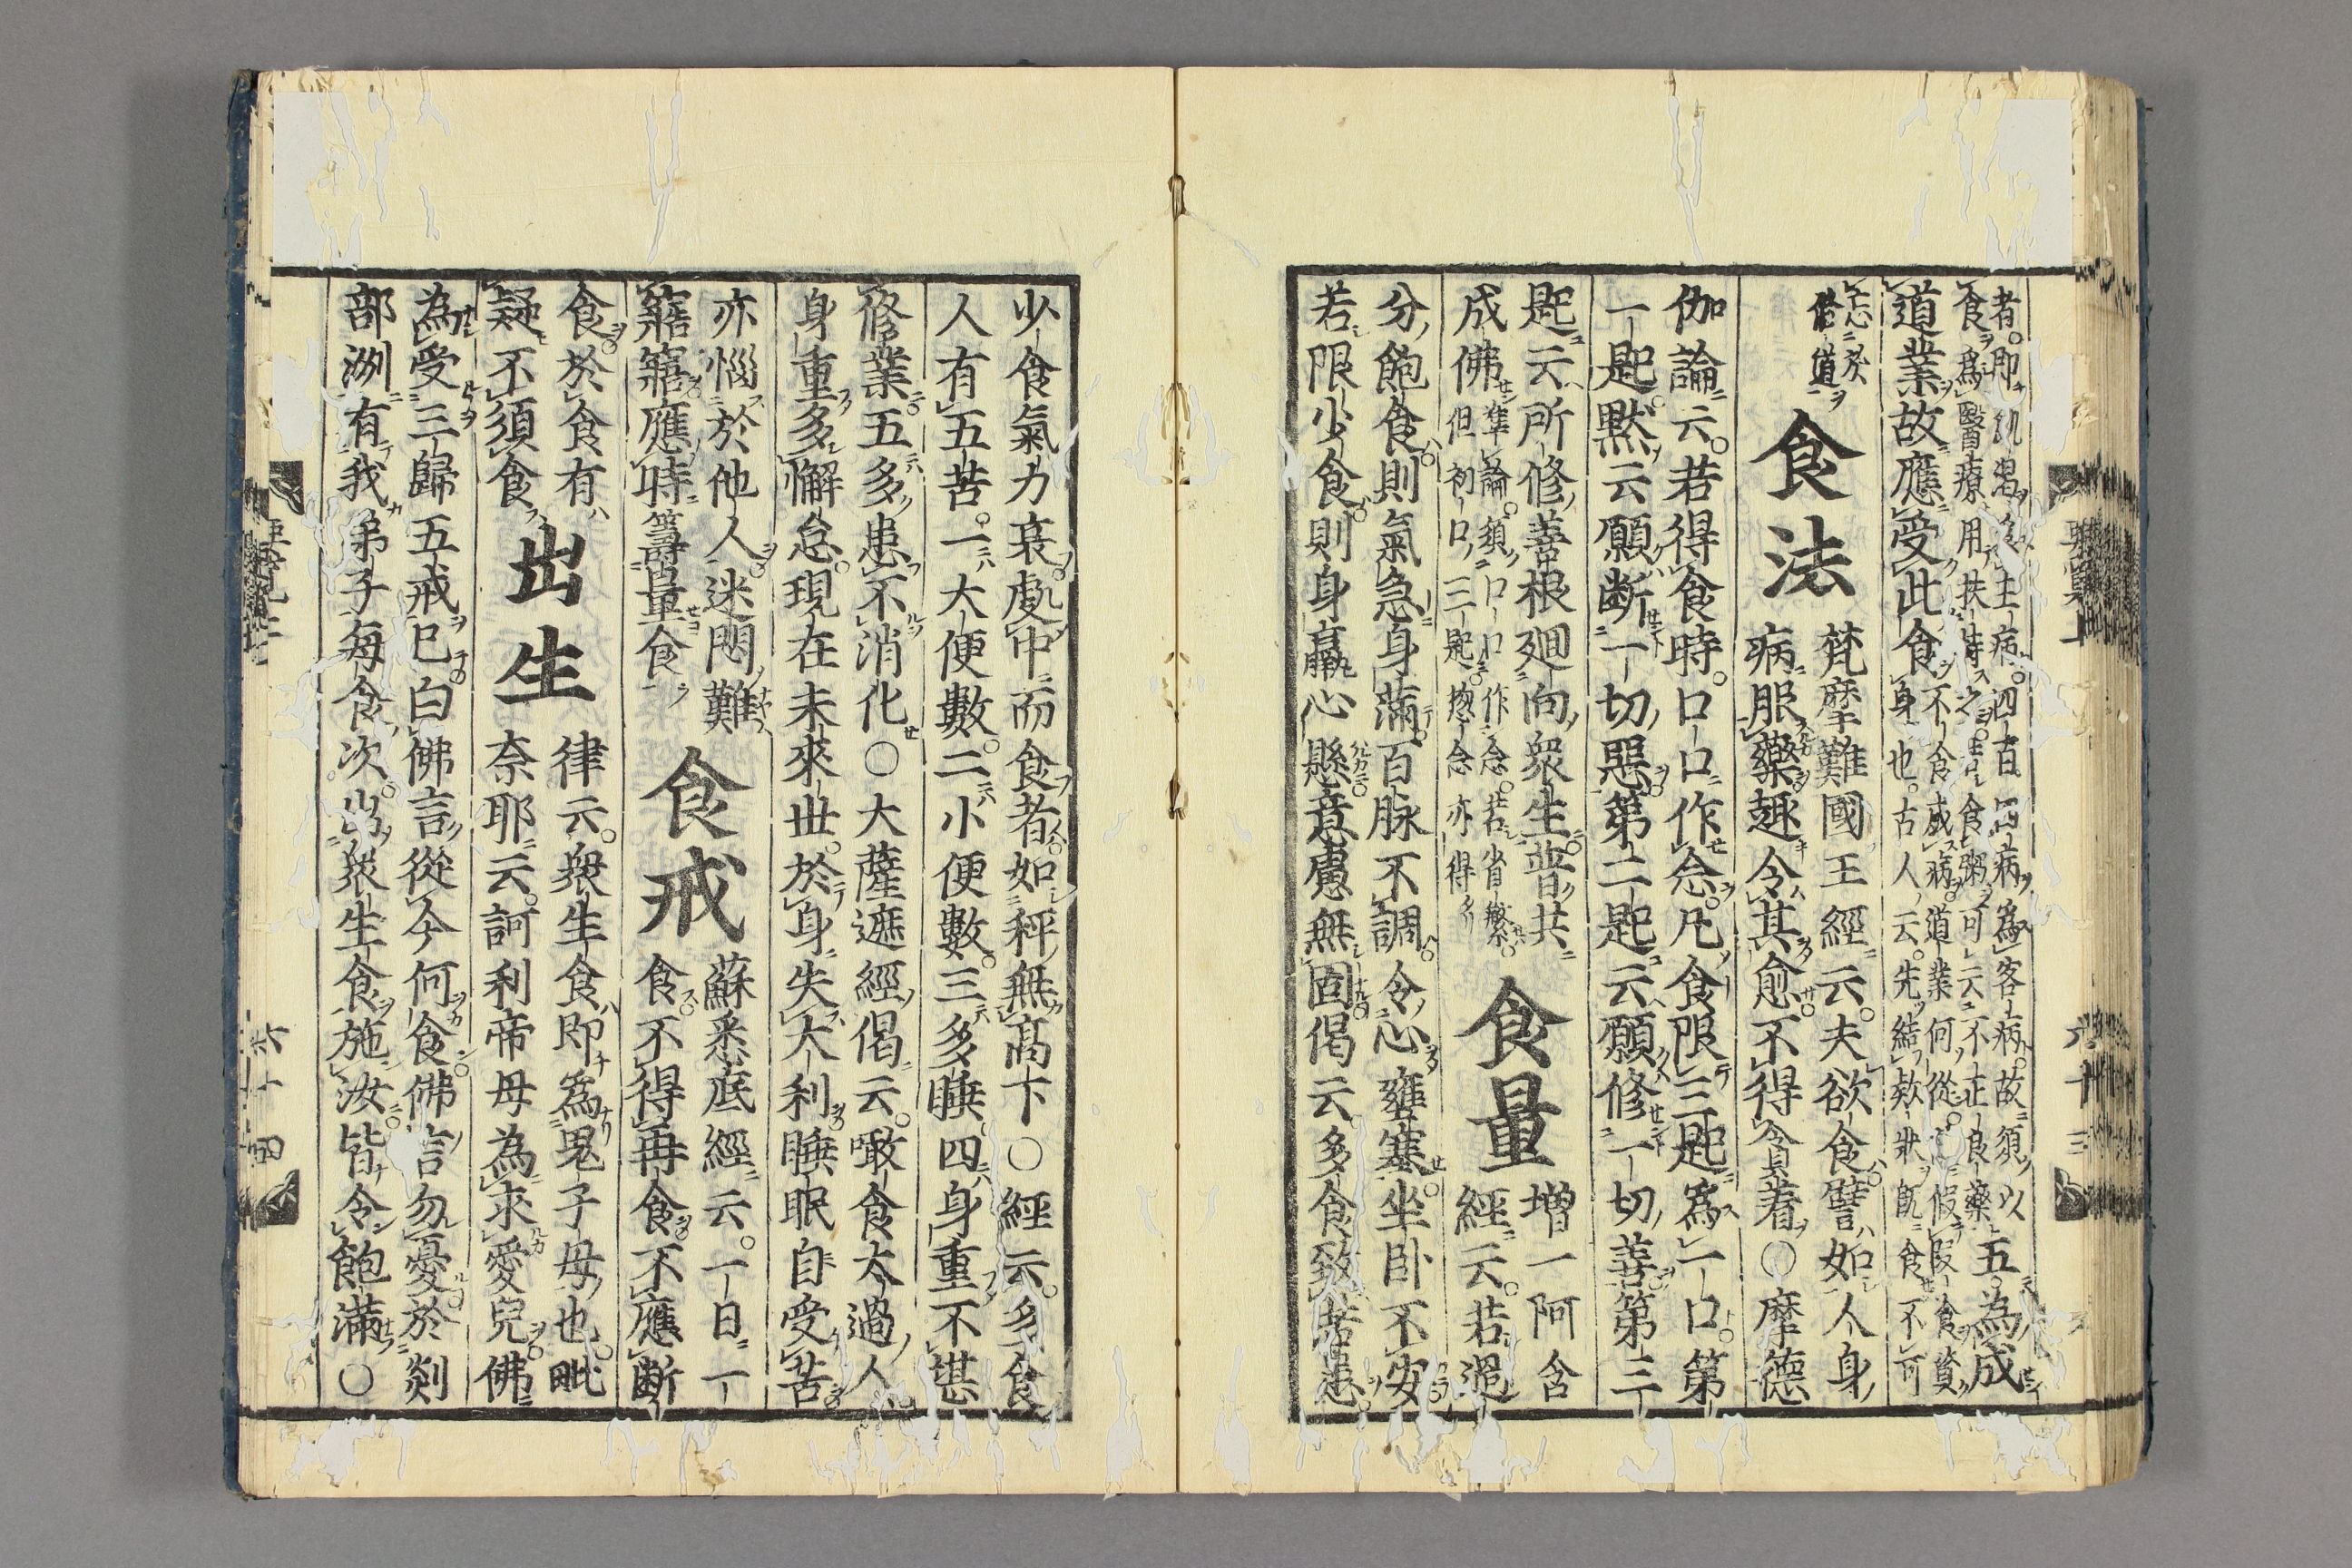 者即飢渴主病四百四病為客病故須以
食為醫療用扶身食粥可云不正良藥
五為成
道業故應受此食
不食成病道業何從假食資
身也古人云先結款狀既食不可
忘於
修道
食法
梵摩難國王經云夫欲食譬如人身
病服藥趣令其愈不得貪着○摩德
伽論云若得食時口口作念凡食限三匙為一口第
一匙默云願斷一切惡第二匙云願修一切善第三
匙云所修善根廻向衆生普共
成佛
準論須口口作念若省繁
但初口三匙惣念亦得
食量
增一阿含
經云若過
分飽食則氣急身滿百脉不調令心壅塞坐卧不安
若限少食則身羸心懸意慮無固偈云多食致苦患
少食氣力衰處中而食者如秤無髙下○經云多食
人有五苦一大便數二小便數三多睡四身重不堪
修業五多患不消化○大薩遮經偈云噉食太過人
身重多懈怠現在未來世於身失大利睡眠自受苦
亦惱於他人迷悶難
寤寤應時籌量食
食戒
蘇悉底經云一日一
食不得再食不應斷
食於食有
疑不須食
出生
律云衆生食即為鬼子母也毗
奈耶云訶利帝母為求愛兒佛
為受三歸五戒已白佛言從今何食佛言勿憂於剡
部洲有我弟子每食次出衆生食施汝皆令飽滿○
六十三
六十四